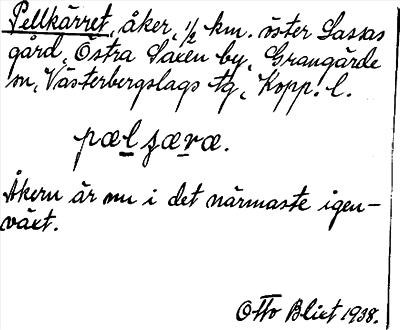 Pellkärret, åker, ½ km. öster Lassas
gård, Östra Saxen by, Grangärde
sn, Västerbergslags tg, Kopp. l.
pælʃæræ.
Åkern är nu i det närmaste igen-
växt.
Otto Blixt 1938.